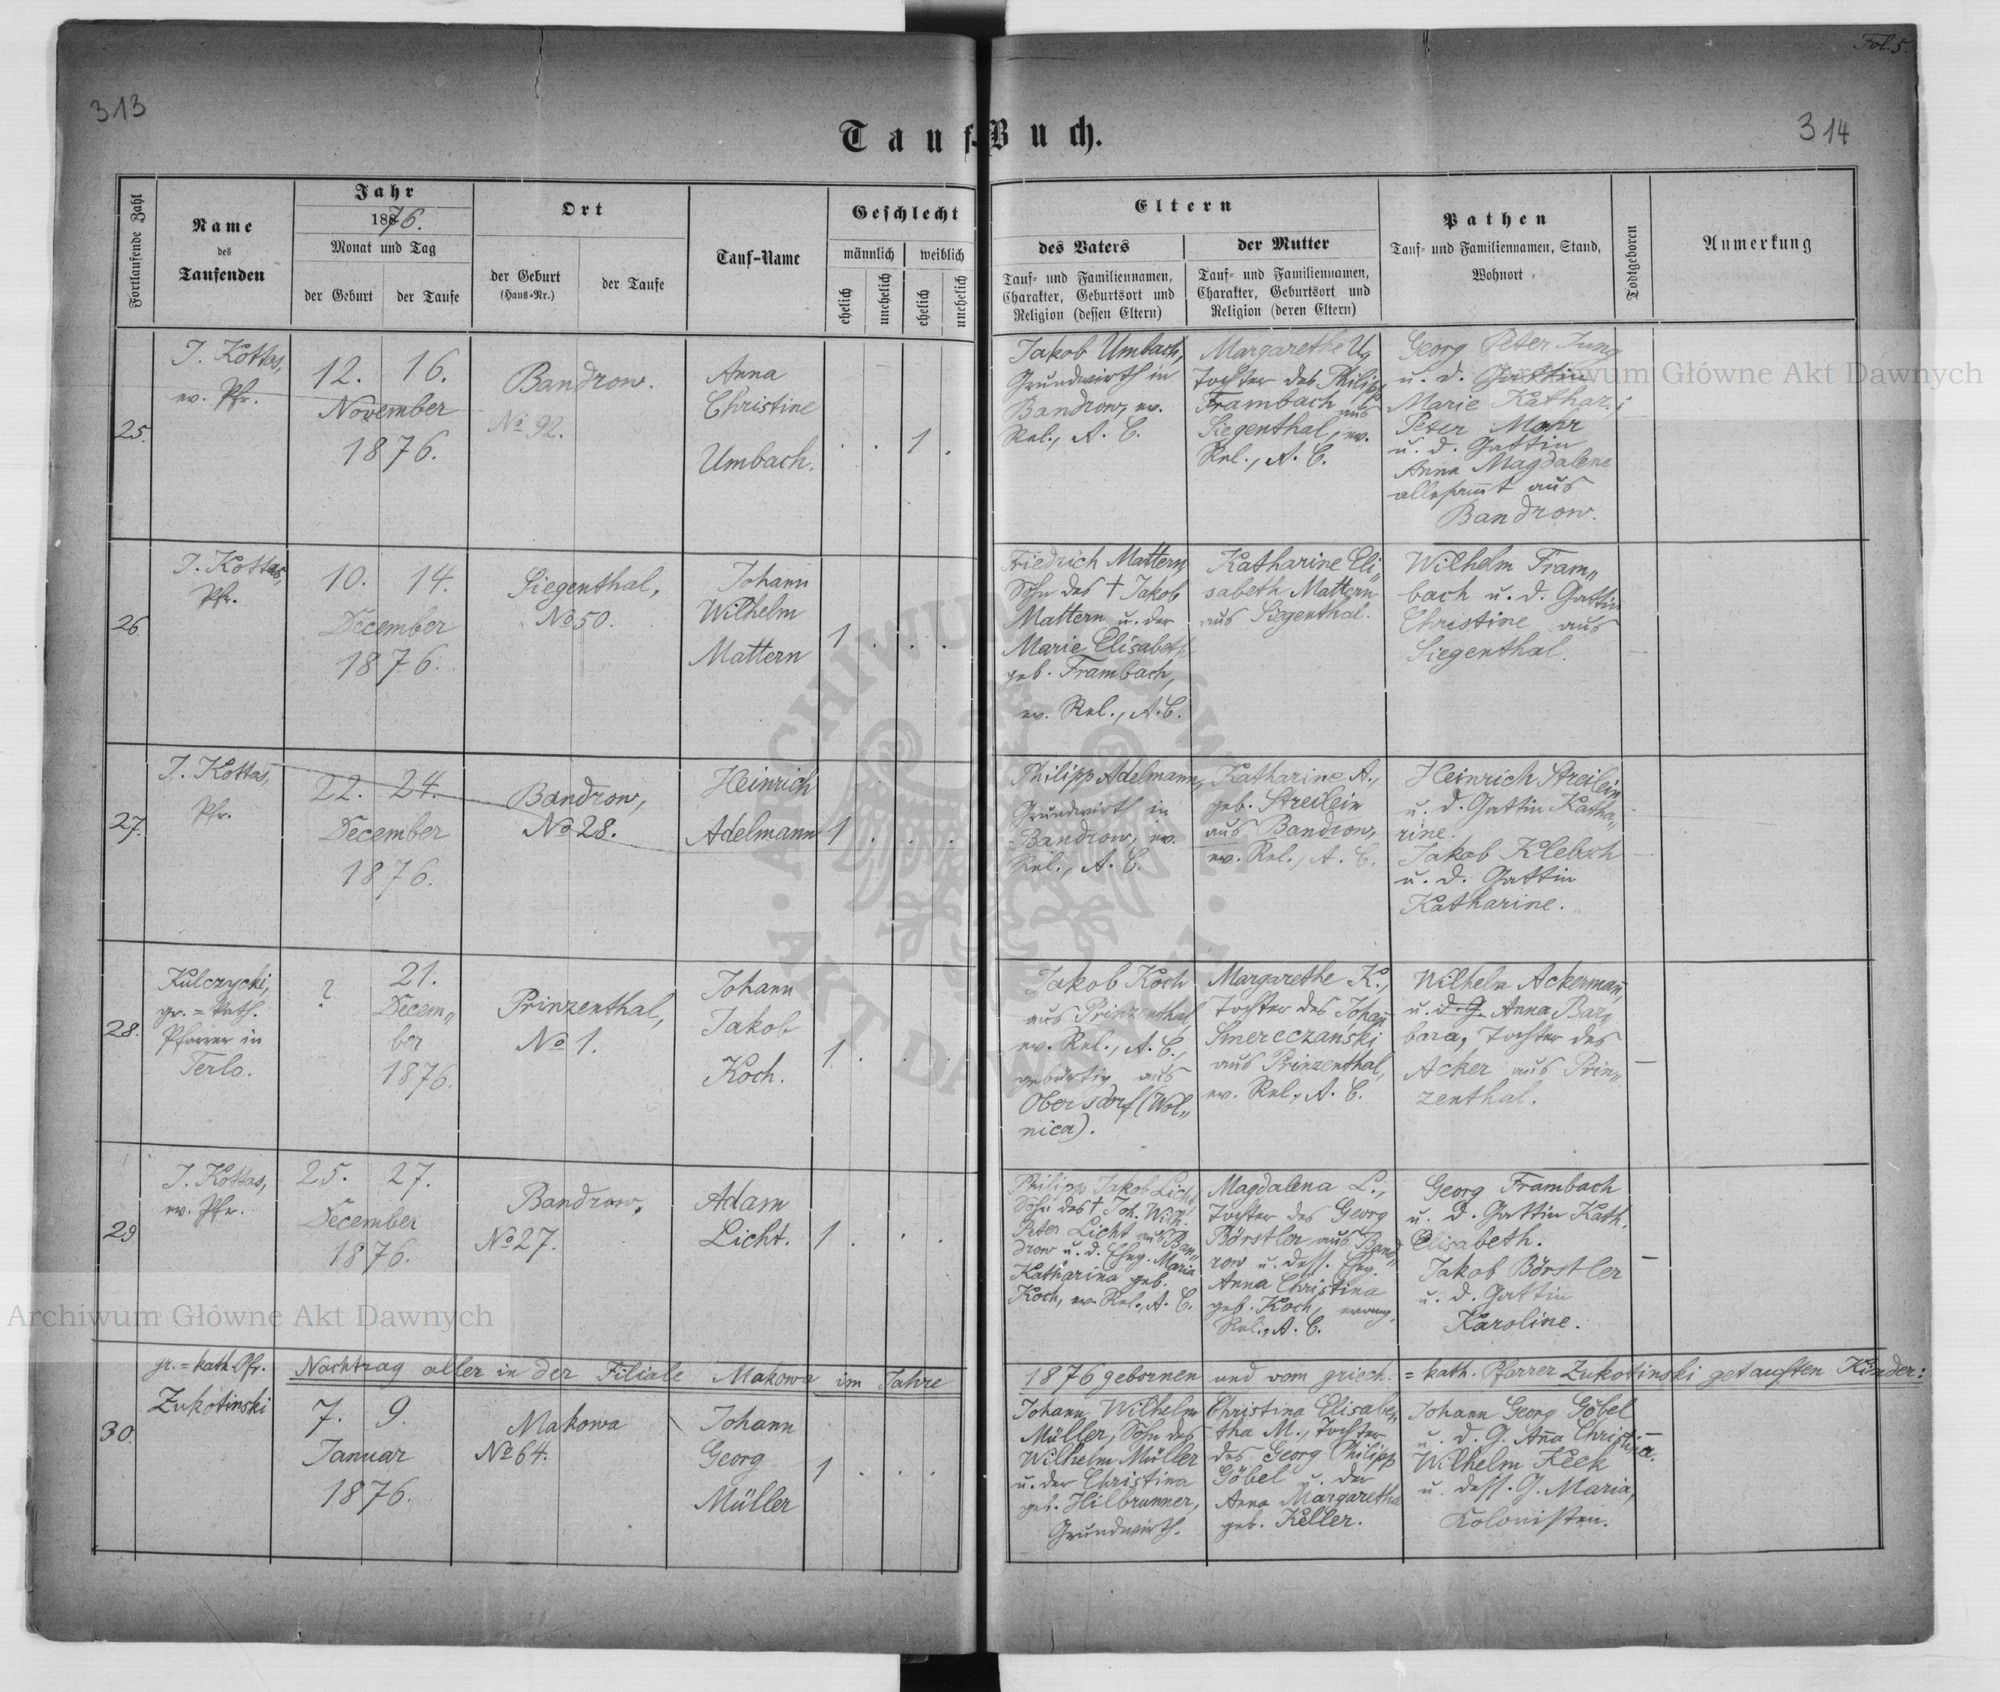 313
Fol. 5.
314
Tauf-Buch.
Fortlaufende Zahl
Name
des
Taufenden
Jahr
1876.
Monat und Tag
der Geburt
der Taufe
Ort
der Geburt
(Haus-Nr.)
der Taufe
Tauf-Name
Geschlecht
männlich
weiblich
ehelich
unehelich
ehelich
unehelich
Eltern
des Vaters
Tauf- und Familiennamen,
Charakter, Geburtsort und
Religion (dessen Eltern)
der Mutter
Tauf- und Familiennamen,
Charakter, Geburtsort und
Religion (deren Eltern)
Pathen
Tauf- und Familiennamen, Stand,
Wohnort
Todtgeboren
Anmerkung
25.
J. Kottas,
ev. Pfr.
12. 16.
November
1876.
Bandrow.
No 92.
Anna
Christine
Umbach.
1
Jakob Umbach,
Grundwirth in
Bandrow, ev.
Rel., A. C.
Margarethe U.,
Tochter des Philipp
Frambach aus
Siegenthal, ev.
Rel., A. C.
Georg Peter Jung
u. d. Gattin
Marie Kathar.;
Peter Mohr
u. d. Gattin
Anna Magdalene
allesammt aus
Bandrow.
26.
J. Kottas,
Pfr.
10. 14.
December
1876.
Siegenthal,
No 50.
Johann
Wilhelm
Mattern
1
Friedrich Mattern,
Sohn des † Jakob
Mattern u. der
Marie Elisabeth
geb. Frambach,
ev. Rel., A. C.
Katharine Eli„
sabeth Mattern
aus Siegenthal.
Wilhelm Fram„
bach u. d. Gattin
Christine aus
Siegenthal.
27.
J. Kottas,
Pfr.
22. 24.
December
1876.
Bandrow,
No 28.
Heinrich
Adelmann
1
Philipp Adelmann,
Grundwirth in
Bandrow, ev.
Rel., A. C.
Katharine A.,
geb. Streilein
aus Bandrow,
ev. Rel., A. C.
Heinrich Streilein
u. d. Gattin Katha„
rine.
Jakob Klebsch
u. d. Gattin
Katharine.
28.
Kulczycki,
gr.=kath.
Pfarrer in
Terlo.
? 21.
Decem„
ber
1876.
Prinzenthal,
No 1.
Johann
Jakob
Koch.
1.
Jakob Koch
aus Prinzenthal,
ev. Rel., A. C.,
gebürtig aus
Obersdorf (Wol„
nica).
Margarethe K.,
Tochter des Johan̄
Smereczański
aus Prinzenthal,
ev. Rel., A. C.
Wilhelm Ackerman̄,
u. d. G. Anna Bar„
bara, Tochter des
Acker aus Prin„
zenthal.
29
J. Kottas,
ev. Pfr.
25. 27.
December
1876.
Bandrow,
No 27.
Adam
Licht.
1
Philipp Jakob Licht,
Sohn des † Joh. Wilh.
Peter Licht aus Ban„
drow u. d. Eheg. Maria
Katharina geb.
Koch, ev. Rel., A. C.
Magdalena L.,
Tochter des Georg
Börstler aus Band„
row u. dess. Eheg.
Anna Christina
geb. Koch, evang.
Rel., A. C.
Georg Frambach
u. d. Gattin Kath.
Elisabeth.
Jakob Börstler
u. d. Gattin
Karoline.
Nachtrag aller in der Filiale Makowa im Jahre 1876 gebornen und vom griech.=kath. Pfarrer Zukotinski getauften Kinder:
30.
gr.=kath. Pfr.
Zukotinski
7. 9.
Januar
1876.
Makowa
No 64.
Johann
Georg
Müller
1
Johann Wilhelm
Müller, Sohn des
Wilhelm Müller
u. der Christina
geb. Hilbrunner,
Grundwirth.
Christina Elisabe„
tha M., Tochter
des Georg Philipp
Göbel u. der
Anna Margaretha
geb. Keller.
Johann Georg Göbel
u. d. G. An̄a Christina.
Wilhelm Keck
u. dess. G. Maria,
Kolonisten.
Archiwum Główne Akt Dawnych
Archiwum Główne Akt Dawnych